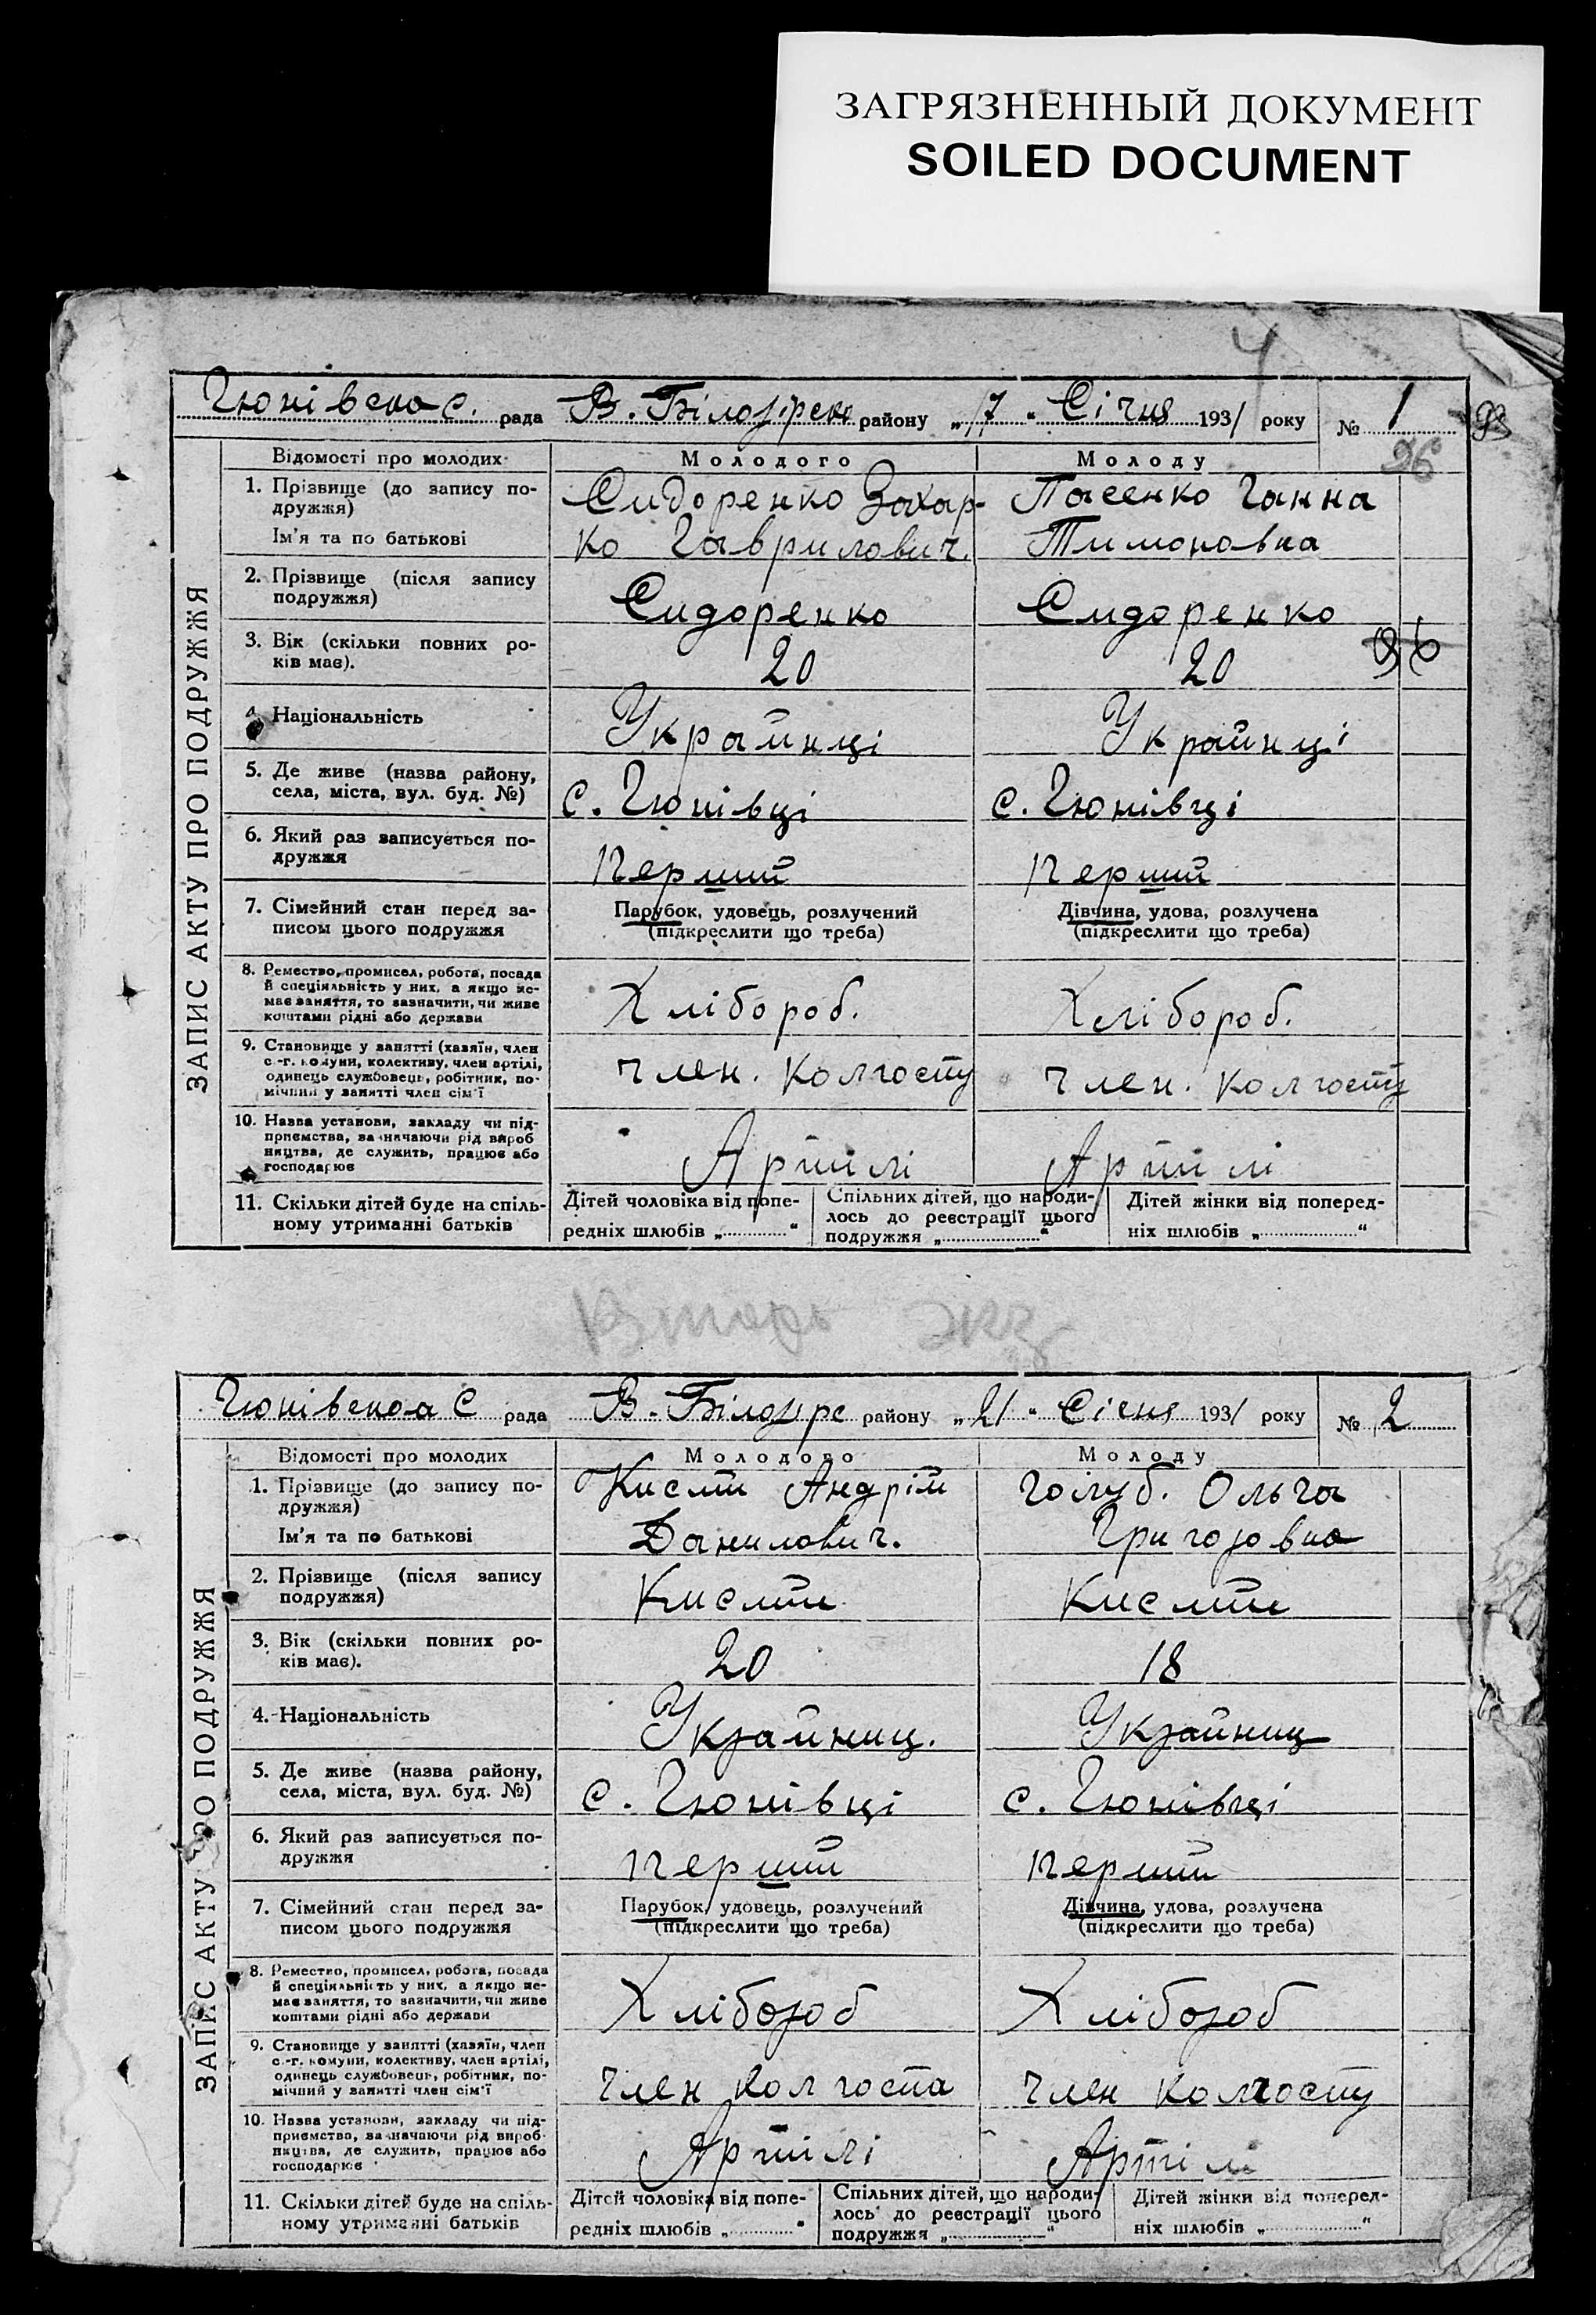 ЗАГРЯЗНЕННЫЙ ДОКУМЕНТ
SOILED DOCUMENT
4
Гюнівська с. рада В. Білозірсько району „17“ Січня 1931 року № 1
93
96
ЗАПИС АКТУ ПРО ПОДРУЖЖЯ
Відомості про молодих Молодого Молоду
1. Прізвище (до запису по-
дружжя)
Ім'я та по батькові
Сидоренко Захар-
ко Гаврилович.
Пасенко Ганна
Тимоновна
2. Прізвище (після запису
подружжя)
Сидоренко Сидоренко
3. Вік (скільки повних ро-
ків має).
20 20
96
4. Національність Украйнці Украйнці
5. Де живе (назва району,
села, міста, вул. буд. №)
с. Гюнівці с. Гюнівці
6. Який раз записується по-
дружжя
перший перший
7. Сімейний стан перед за-
писом цього подружжя
Парубок, удовець, розлучений
(підкреслити що треба)
Дівчина, удова, розлучена
(підкреслити що треба)
8. Ремество, промисел, робота, посада
й спеціяльність у них, а якщо не-
має заняття, то зазначити, чи живе
коштами рідні або держави
Хлібороб. Хлібороб.
9. Становище у занятті (хазяїн, член
с.-г. комуни, колективу, член артілі,
одинець службовець, робітник, по-
мічний у занятті член сім'ї
член. колгоспу член. колгоспу
10. Назва установи, закладу чи під-
приємства, зазначаючи рід вироб
ництва, де служить, працює або
господарює
Артілі Артілі
11. Скільки дітей буде на спіль-
ному утриманні батьків
Дітей чоловіка від попе-
редніх шлюбів „ “
Спільних дітей, що народи-
лось до реєстрації цього
подружжя „ “
Дітей жінки від поперед-
ніх шлюбів „ “
Гюнівська С рада В. Білозірс району „21“ Січня 1931 року № 2
ЗАПИС АКТУ ПРО ПОДРУЖЖЯ
Відомості про молодих Молодого Молоду
1. Прізвище (до запису по-
дружжя)
Ім'я та по батькові
Андрій
Данилович.
Голуб. Ольга
Григоровна
2. Прізвище (після запису
подружжя)
3. Вік (скільки повних ро-
ків має).
20 18
4. Національність Украйниц. Украйниц
5. Де живе (назва району,
села, міста, вул. буд. №)
с. Гюнівці с. Гюнівці
6. Який раз записується по-
дружжя
перший перший
7. Сімейний стан перед за-
писом цього подружжя
Парубок, удовець, розлучений
(підкреслити що треба)
Дівчина, удова, розлучена
(підкреслити що треба)
8. Ремество, промисел, робота, посада
й спеціяльність у них, а якщо не-
має заняття, то зазначити, чи живе
коштами рідні або держави
Хлібороб Хлібороб
9. Становище у занятті (хазяїн, член
с.-г. комуни, колективу, член артілі,
одинець службовець, робітник, по-
мічний у занятті член сім'ї
член колгоспа член колгоспу
10. Назва установи, закладу чи під-
приємства, зазначаючи рід вироб-
ництва, де служить, працює або
господарює
Артілі Артілі
11. Скільки дітей буде на спіль-
ному утриманні батьків
Дітей чоловіка від попе-
редніх шлюбів „ “
Спільних дітей, що народи-
лось до реєстрації цього
подружжя „ “
Дітей жінки від поперед-
ніх шлюбів „ “